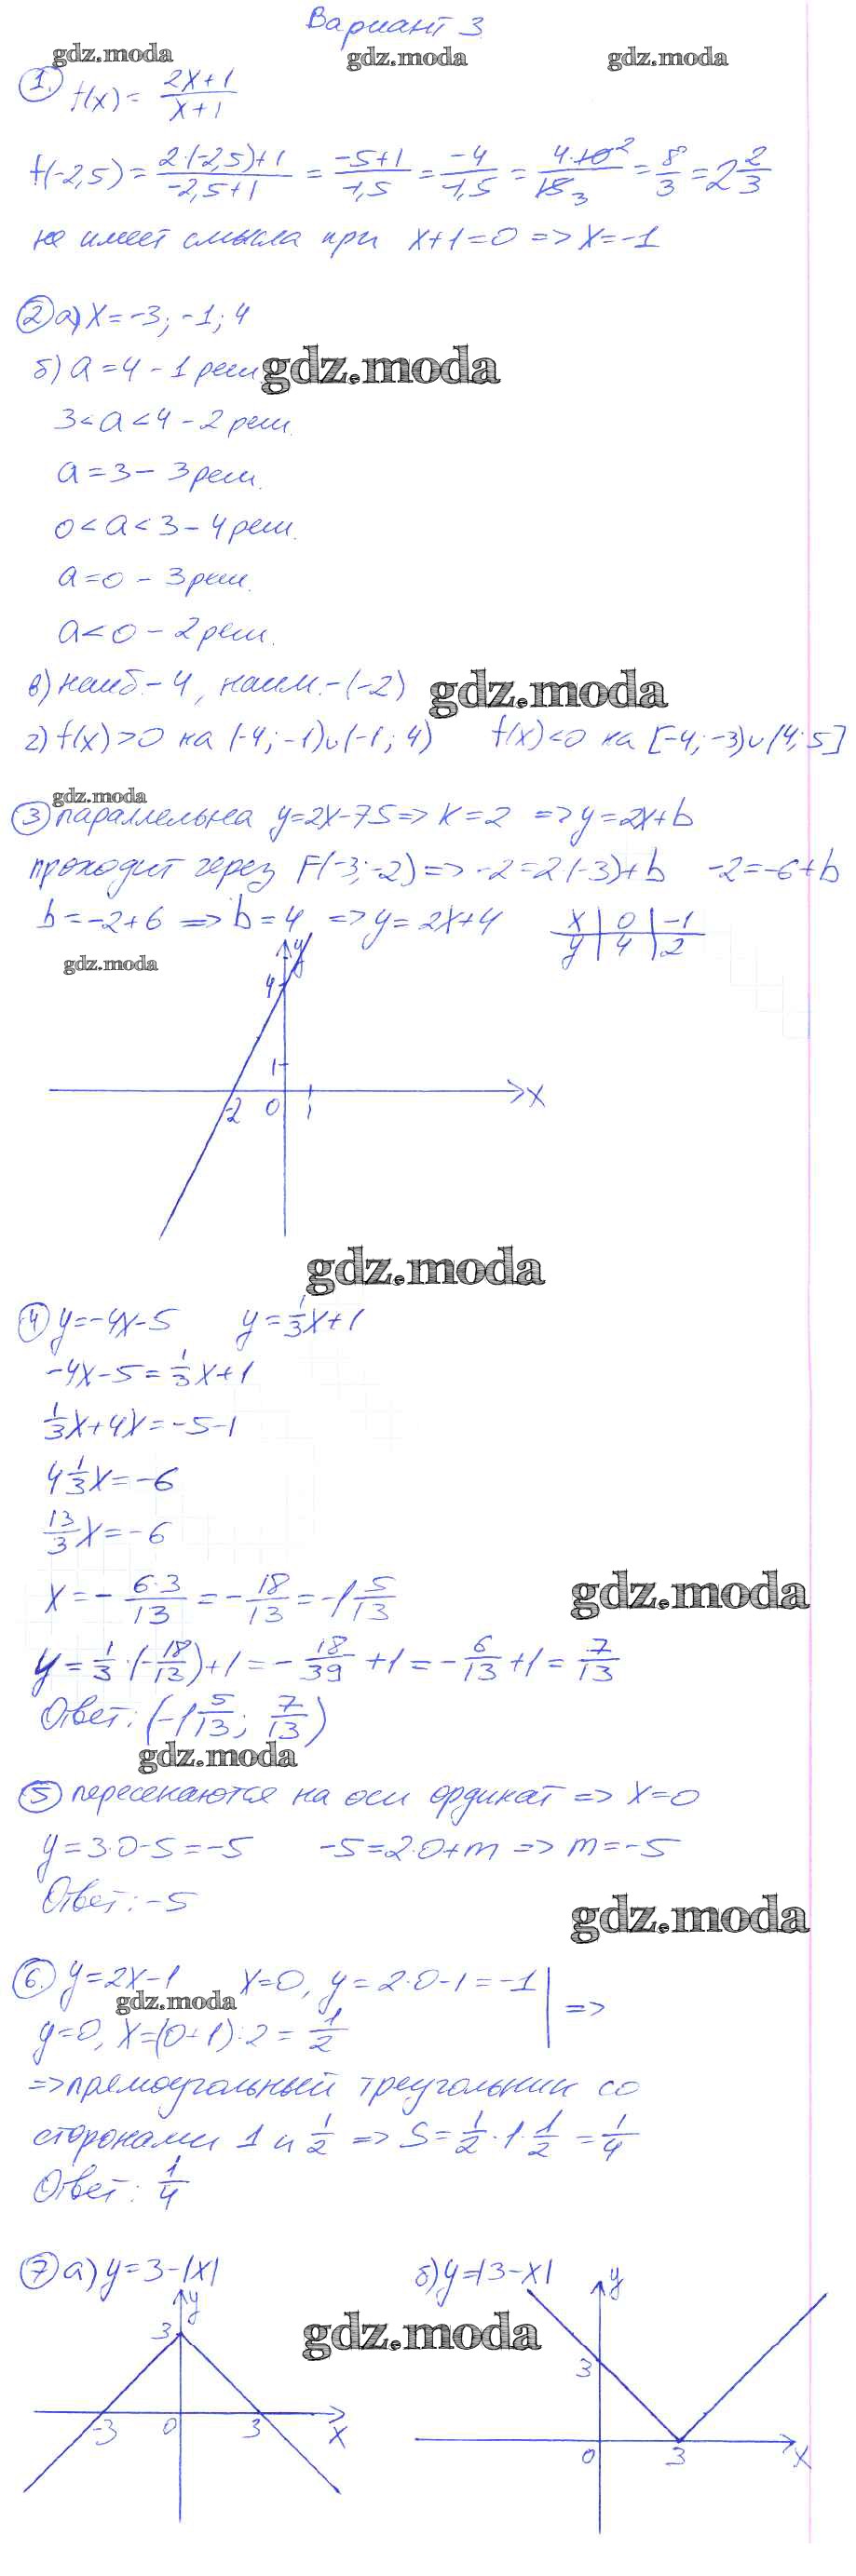 Вариант 3
gdz.moda gdz.moda gdz.moda
1. f(x) = (2x+1)/(x+1)
f(-2,5) = (2·(-2,5)+1)/(-2,5+1) = (-5+1)/(-1,5) = (-4)/(-1,5) = (4·10 2)/(15 3) = 8/3 = 2 2/3
не имеет смысла при x+1=0 => x=-1
2 а) x=-3; -1; 4
б) a=4 - 1 реш. gdz.moda
3<a<4 - 2 реш.
a=3 - 3 реш.
0<a<3 - 4 реш.
a=0 - 3 реш.
a<0 - 2 реш.
в) наиб.- 4, наим.- (-2) gdz.moda
г) f(x)>0 на (-4; -1)∪(-1; 4) f(x)<0 на [-4; -3)∪(4; 5]
gdz.moda
3 параллельна y=2x-75 => k=2 => y=2x+b
проходит через F(-3; -2) => -2=2(-3)+b -2=-6+b
b=-2+6 => b=4 => y=2x+4 x | 0 | -1
y | 4 | 2
gdz.moda
y
4
1
-2 0 1 x
gdz.moda
4 y=-4x-5 y=1/3x+1
-4x-5=1/3x+1
1/3x+4x=-5-1
4 1/3x=-6
13/3x=-6
x=-(6·3)/13=-18/13=-1 5/13 gdz.moda
y=1/3·(-18/13)+1=-18/39+1=-6/13+1=7/13
Ответ: (-1 5/13; 7/13)
gdz.moda
5 пересекаются на оси ординат => x=0
y=3·0-5=-5 -5=2·0+m => m=-5
Ответ: -5
gdz.moda
6. y=2x-1 x=0, y=2·0-1=-1 | =>
gdz.moda
y=0, x=(0+1):2=1/2
=> прямоугольный треугольник со
сторонами 1 и 1/2 => S=1/2·1·1/2=1/4
Ответ: 1/4
7 а) y=3-|x| б) y=|3-x|
y y
3 gdz.moda
3
-3 0 3 x
0 3 x